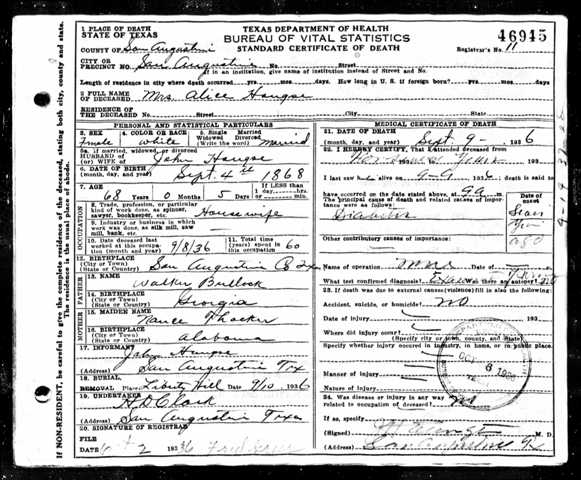 TEXAS DEPARTMENT OF HEALTH
BUREAU OF VITAL STATISTICS
STANDARD CERTIFICATE OF DEATH
46945
Registrar's No. 11
1 PLACE OF DEATH
STATE OF TEXAS
COUNTY OF San Augustine
CITY OR
PRECINCT NO. San Augustine No. Street
(If in an institution, give name of institution instead of Street and No.
Length of residence in city where death occurred yrs. mos. days. How long in U. S. if foreign born? yrs. mos. days
2 FULL NAME
OF DECEASED Mrs. Alice
RESIDENCE OF
THE DECEASED No. Street City State
PERSONAL AND STATISTICAL PARTICULARS
3. SEX female
4. COLOR OR RACE white
5. Single Married
Widowed Divorced
(Write the word) married
5a. If married, widowed, or divorced
HUSBAND OF
(or) WIFE OF John
6. DATE OF BIRTH
(month, day, and year) Sept. 4 1868
7. AGE 68 Years 0 Months 5 Days
If LESS than
1 day,
hrs.
min.
OCCUPATION
8. Trade, profession, or particular
kind of work done, as spinner,
sawyer, bookkeeper, etc. Housewife
9. Industry or business in which
work was done, as silk mill, saw
mill, bank, etc.
10. Date deceased last
worked at this occupation
(month and year) 9/8/36
11. Total time (years)
spent in this
occupation 60
12. BIRTHPLACE (City or Town)
(State or Country) San Augustine Co Tx
FATHER
13. NAME
Walker Bullock
14. BIRTHPLACE
(City or Town)
(State or Country) Georgia
MOTHER
15. MAIDEN NAME
Thacker
16. BIRTHPLACE
(City or Town)
(State or Country) Alabama
17. INFORMANT John
(Address) San Augustine Tex
18. BURIAL
REMOVAL Place Liberty Hill Date 9/10 1936
19. UNDERTAKER H D Clark
(Address) San Augustine Texas
20. SIGNATURE OF REGISTRAR
FILE
DATE Oct 2 1936
MEDICAL CERTIFICATE OF DEATH
21. DATE OF DEATH
(month, day, and year) Sept 9 - 1936
22. I HEREBY CERTIFY, That I attended deceased from
193
I last saw alive on 9-9 1936 death is said
to have occurred on the date stated above, at 9 a m.
The principal cause of death and related causes of importance were as follows:
Date of onset
Diabetes
ago
Other contributory causes of importance:
Name of operation none
What test confirmed diagnosis? Was there an autopsy? no
23. If death was due to external causes (violence) fill in also the following:
Accident, suicide, or homicide? NO
Date of injury 193
Where did injury occur?
(Specify city, town, or county, and State)
Specify whether injury occurred in industry, in home, or in public place.
Manner of injury
Nature of injury
24. Was disease or injury in any way
related to occupation of deceased? no
If so, specify
(Signed) M. D.
(Address) San Augustine Tx
OCT 6 1936
If NON-RESIDENT, be careful to give the complete residence of the deceased, stating both city, county and state.
The residence is the usual place of abode.